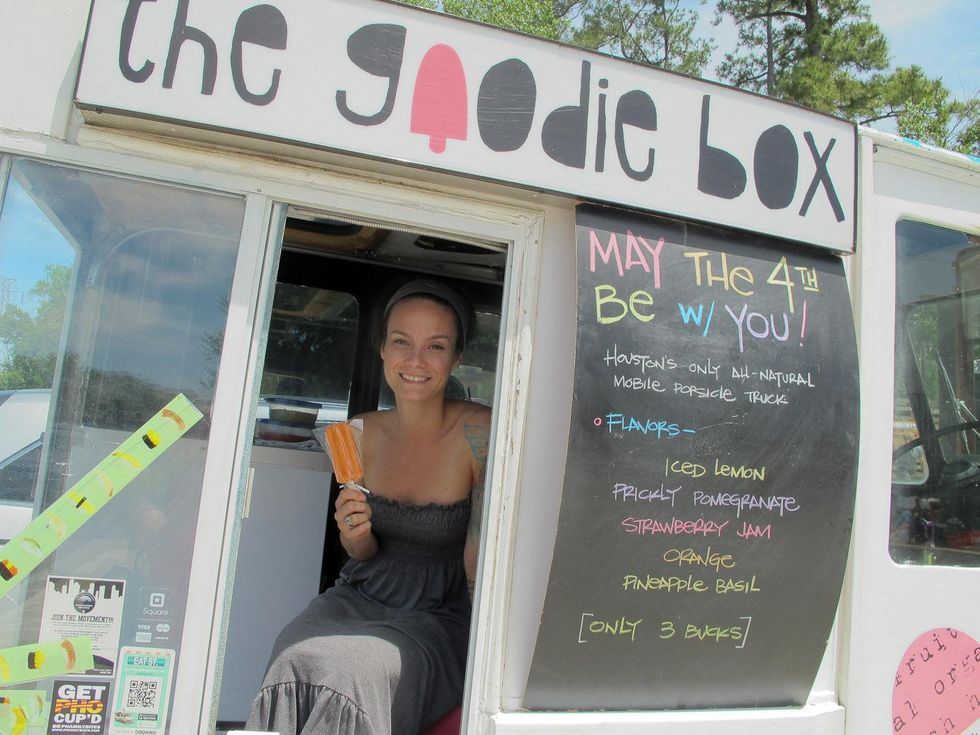 the goodie box
MAY THE 4TH
BE W/ YOU!
HOUSTON'S ONLY ALL-NATURAL
MOBILE POPSICLE TRUCK
FLAVORS-
ICED LEMON
PRICKLY POMEGRANATE
STRAWBERRY JAM
ORANGE
PINEAPPLE BASIL
[ONLY 3 BUCKS]
JOIN THE MOVEMENT!!!
Square
VISA
EAT ST.
COOKING
GET
PHO
CUP'D
fruit
orga
al